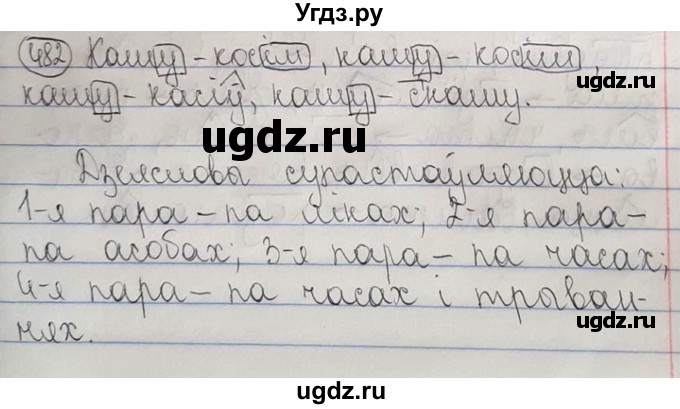 Угдз.ру
482 Кашу - косім, кашу - косіш,
кашу - касіў, кашу - скашу.
ugdz.ru
ugdz.ru
Дзеясловы супастаўляюцца:
1-я пара - па ліках; 2-я пара -
па асобах; 3-я пара - па часах;
4-я пара - па часах і трыван-
нях.
ugdz.ru
ugdz.ru
ugdz.ru